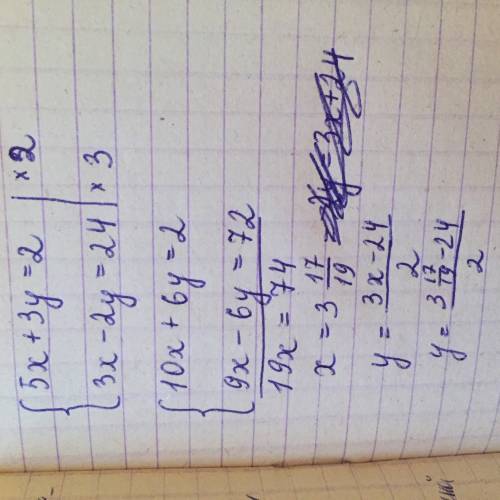 5x + 3y = 2 | × 2
3x - 2y = 24 | × 3
10x + 6y = 2
9x - 6y = 72
19x = 74
x = 3 17/19
y = 3x - 24 / 2
y = 3 17/19 - 24 / 2